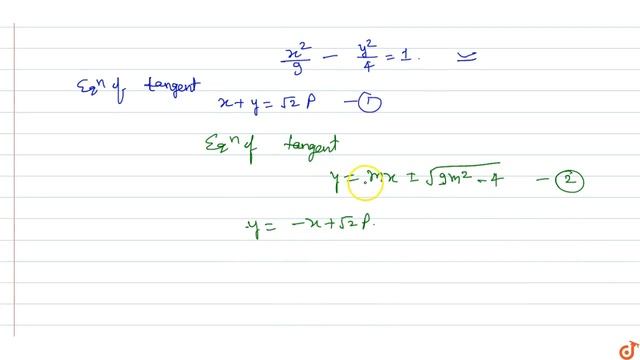 x²/9 - y²/4 = 1.
Eqⁿ of tangent
x + y = √2 P - ①
Eqⁿ of tangent
y = mx ± √(9m² - 4) - ②
y = -x + √2 P.